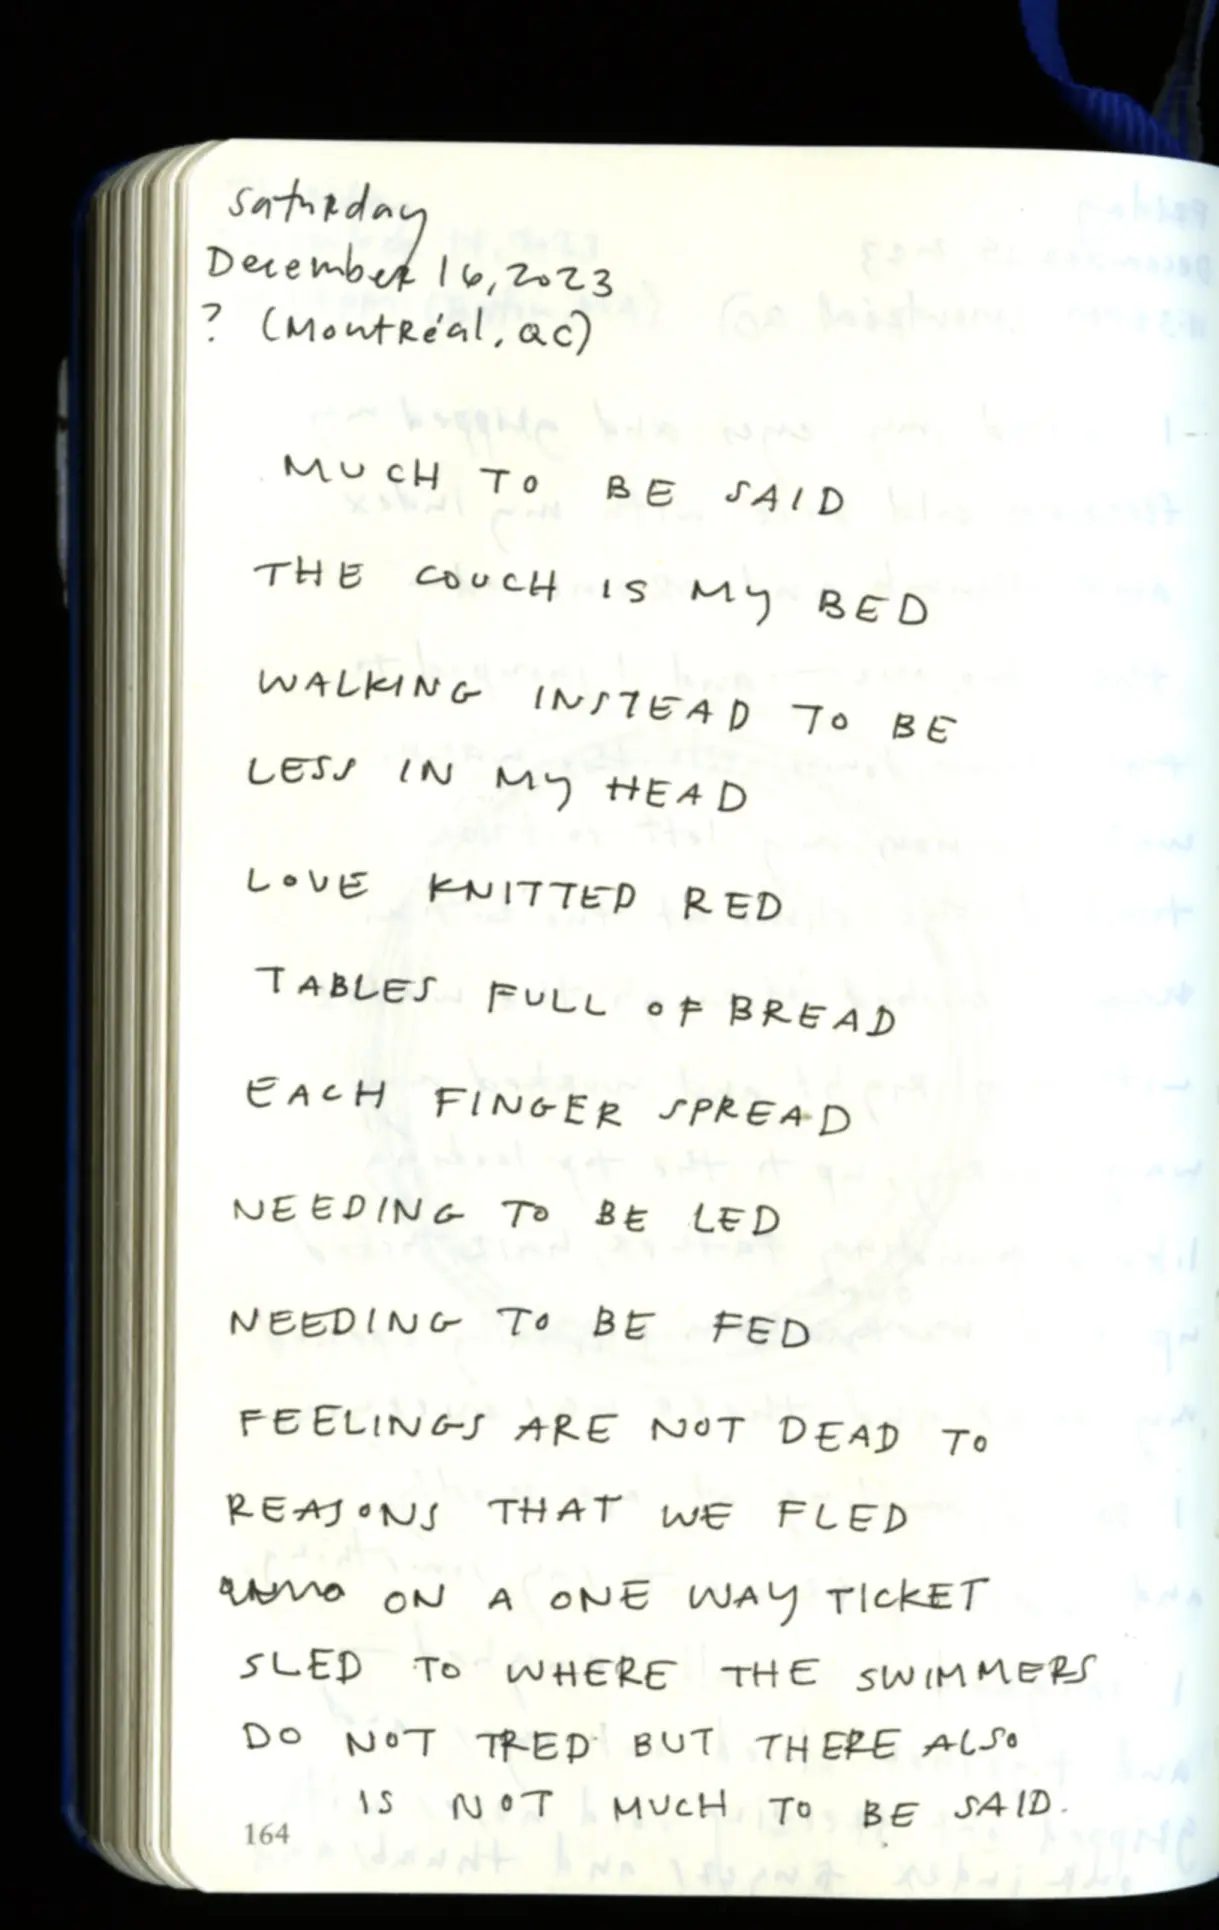 Saturday
December 16, 2023
? (Montréal, QC)
MUCH TO BE SAID
THE COUCH IS MY BED
WALKING INSTEAD TO BE
LESS IN MY HEAD
LOVE KNITTED RED
TABLES FULL OF BREAD
EACH FINGER SPREAD
NEEDING TO BE LED
NEEDING TO BE FED
FEELINGS ARE NOT DEAD TO
REASONS THAT WE FLED
ON A ONE WAY TICKET
SLED TO WHERE THE SWIMMERS
DO NOT TRED BUT THERE ALSO
IS NOT MUCH TO BE SAID.
164